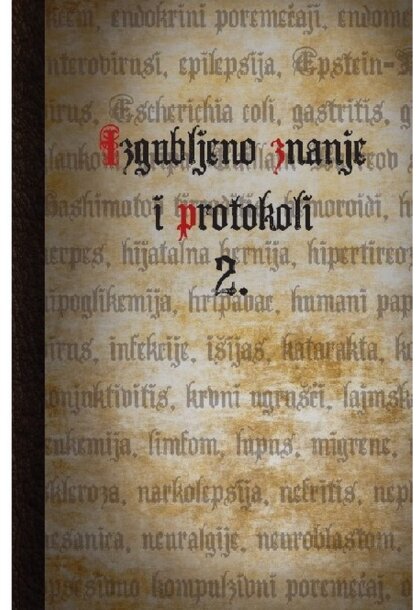 kcem, endokrini poremećaji, endome
nterovirusi, epilepsija, Epstein-
irus, Escherichia coli, gastritis, g
Izgubljeno znanje
i protokoli
2.
erpes, hijatalna hernija, hipertireo
ipoglikemija, hripavac, humani pap
irus, infekcije, išijas, katarakta, k
onjuktivitis, krvni ugrušci, lajmsk
eukemija, limfom, lupus, migrene,
skleroza, narkolepsija, nefritis, nep
esanica, neuralgije, neuroblastom,
psesivno kompulzivni poremećaj,